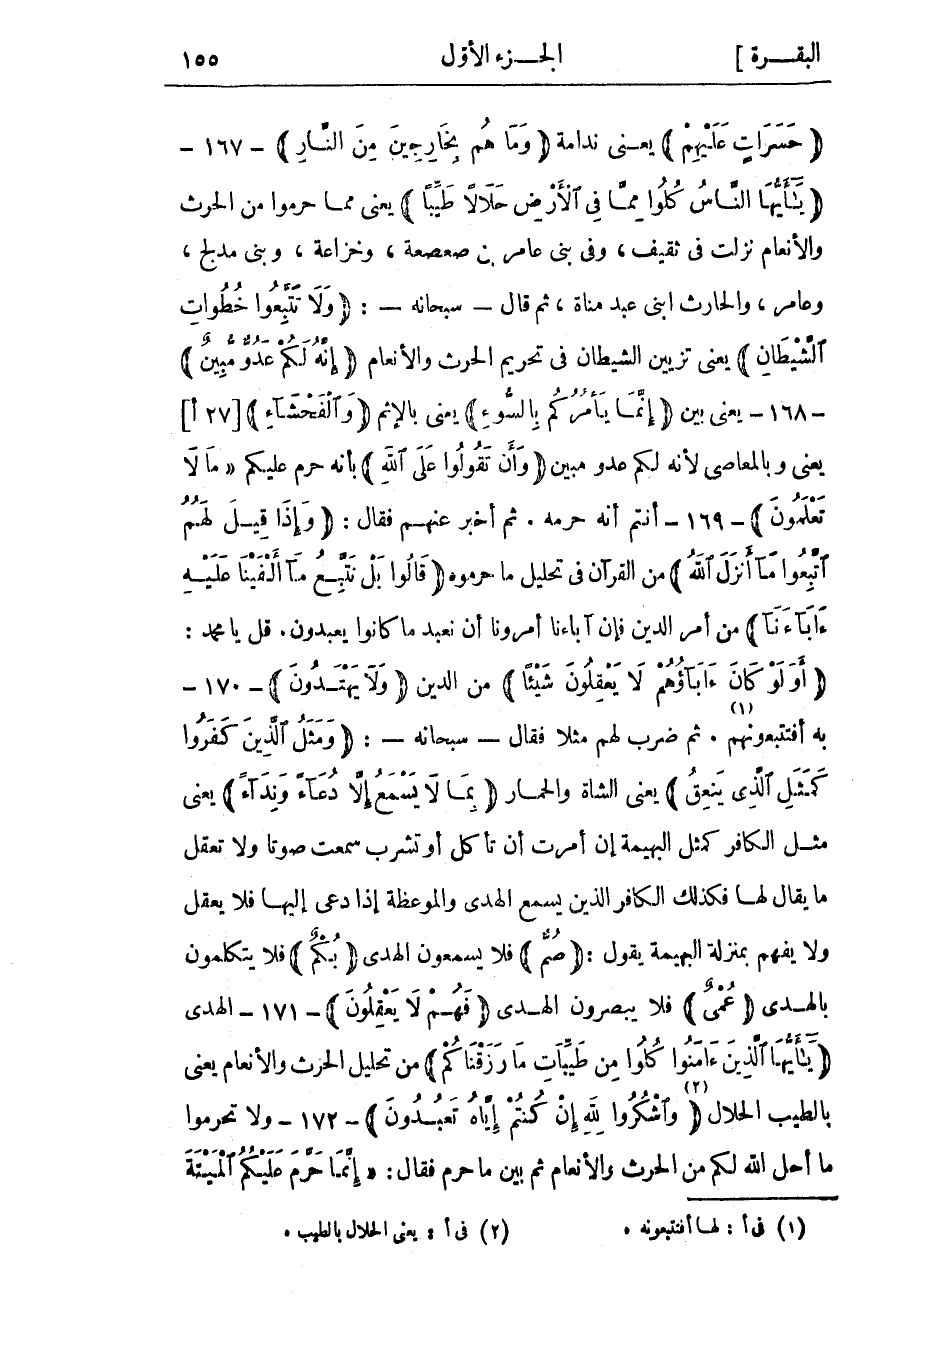 البقرة ] الجزء الأول ١٥٥
﴿ حَسَرَاتٍ عَلَيْهِمْ ﴾ يعنى ندامة ﴿ وَمَا هُم بِخَارِجِينَ مِنَ النَّارِ ﴾ - ١٦٧ -
﴿ يَٰٓأَيُّهَا النَّاسُ كُلُوا مِمَّا فِى ٱلْأَرْضِ حَلَالًا طَيِّبًا ﴾ يعنى مما حرموا من الحرث
والأنعام نزلت فى ثقيف ، وفى بنى عامر بن صعصعة ، وخزاعة ، وبنى مدلج ،
وعامر ، والحارث ابنى عبد مناة ، ثم قال - سبحانه - : ﴿ وَلَا تَتَّبِعُوا خُطُوَاتِ
ٱلشَّيْطَانِ ﴾ يعنى تزيين الشيطان فى تحريم الحرث والأنعام ﴿ إِنَّهُ لَكُمْ عَدُوٌّ مُّبِينٌ ﴾
- ١٦٨ - يعنى بين ﴿ إِنَّمَا يَأْمُرُكُم بِالسُّوٓءِ ﴾ يعنى بالإثم ﴿ وَٱلْفَحْشَآءِ ﴾ [ ٢٧ أ ]
يعنى وبالمعاصى لأنه لكم عدو مبين ﴿ وَأَن تَقُولُوا عَلَى ٱللَّهِ ﴾ بأنه حرم عليكم « مَا لَا
تَعْلَمُونَ ﴾ - ١٦٩ - أنتم أنه حرمه . ثم أخبر عنهم فقال : ﴿ وَإِذَا قِيلَ لَهُمُ
ٱتَّبِعُوا مَآ أَنزَلَ ٱللَّهُ ﴾ من القرآن فى تحليل ما حرموه ﴿ قَالُوا بَلْ نَتَّبِعُ مَآ أَلْفَيْنَا عَلَيْهِ
ءَابَآءَنَآ ﴾ من أمر الدين فإن آباءنا أمرونا أن نعبد ما كانوا يعبدون . قل يا محمد :
﴿ أَوَلَوْ كَانَ ءَابَآؤُهُمْ لَا يَعْقِلُونَ شَيْئًا ﴾ من الدين ﴿ وَلَا يَهْتَدُونَ ﴾ - ١٧٠ -
به أفتتبعونهم (١) . ثم ضرب لهم مثلا فقال - سبحانه - : ﴿ وَمَثَلُ ٱلَّذِينَ كَفَرُوا
كَمَثَلِ ٱلَّذِى يَنعِقُ ﴾ يعنى الشاة والحمار ﴿ بِمَا لَا يَسْمَعُ إِلَّا دُعَآءً وَنِدَآءً ﴾ يعنى
مثل الكافر كمثل البهيمة إن أمرت أن تأكل أو تشرب سمعت صوتا ولا تعقل
ما يقال لها فكذلك الكافر الذين يسمع الهدى والموعظة إذا دعى إليها فلا يعقل
ولا يفهم بمنزلة البهيمة يقول : ﴿ صُمٌّ ﴾ فلا يسمعون الهدى ﴿ بُكْمٌ ﴾ فلا يتكلمون
بالهدى ﴿ عُمْىٌ ﴾ فلا يبصرون الهدى ﴿ فَهُمْ لَا يَعْقِلُونَ ﴾ - ١٧١ - الهدى
﴿ يَٰٓأَيُّهَا ٱلَّذِينَ ءَامَنُوا كُلُوا مِن طَيِّبَاتِ مَا رَزَقْنَاكُمْ ﴾ من تحليل الحرث والأنعام يعنى
بالطيب الحلال (٢) ﴿ وَٱشْكُرُوا لِلَّهِ إِنْ كُنتُمْ إِيَّاهُ تَعْبُدُونَ ﴾ - ١٧٢ - ولا تحرموا
ما أحل الله لكم من الحرث والأنعام ثم بين ما حرم فقال : « إِنَّمَا حَرَّمَ عَلَيْكُمُ ٱلْمَيْتَةَ
(١) فى أ : لها أفتتبعونه . (٢) فى أ : يعنى الحلال بالطيب .